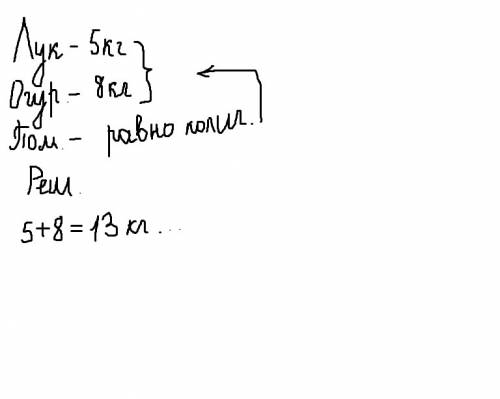 Лук - 5кг
Огур - 8кг
Пом. - равно колич.
Реш.
5+8=13 кг...